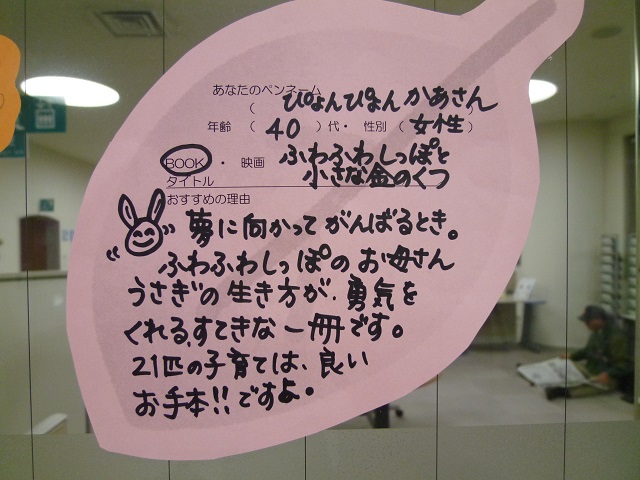 あなたのペンネーム
（ ぴょんぴょんかあさん
年齢 （ 40 ）代・ 性別 （ 女性 ）
BOOK ・ 映画 ふわふわしっぽと
タイトル 小さな金のくつ
おすすめの理由
夢に向かってがんばるとき。
ふわふわしっぽのお母さん
うさぎの生き方が、勇気を
くれる、すてきな一冊です。
21匹の子育ては、良い
お手本!!ですよ。